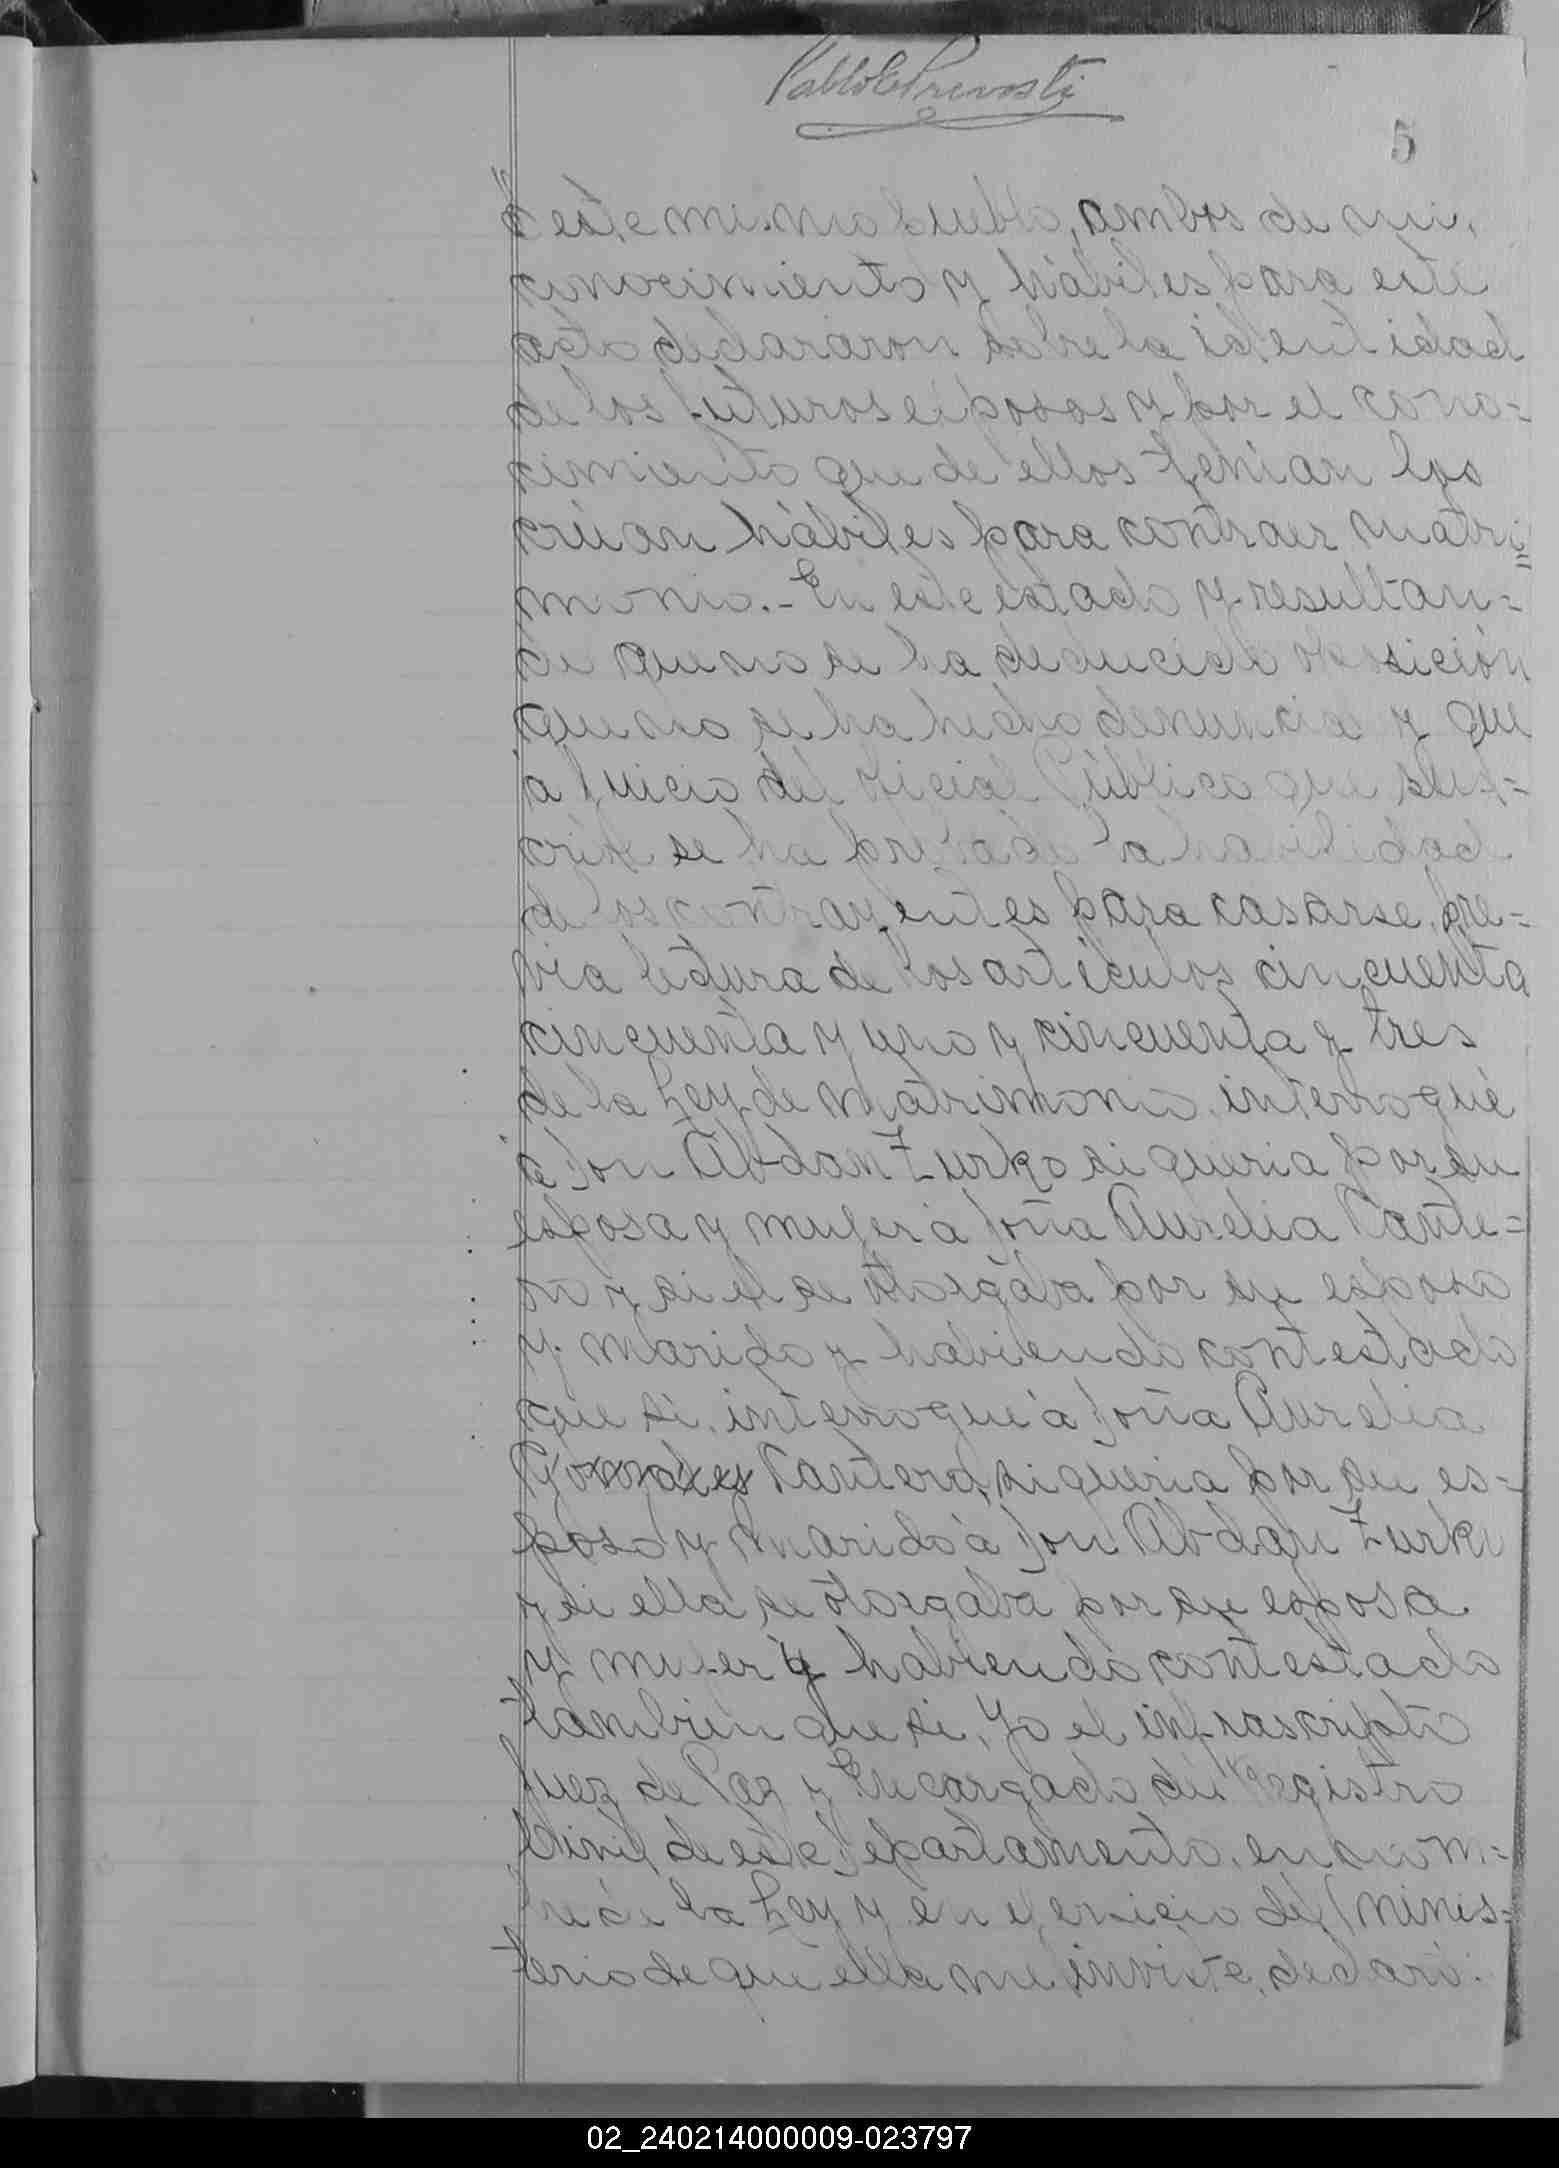 Pablo E Prevosti
5
á este mismo pueblo, ambos de mi,
conocimiento y hábiles para este
acto declararon sobre la identidad
de los futuros esposos y por el cono=
cimiento que de ellos tenian los
creian hábiles para contraer matri=
monio.- En este estado y resultan=
do que no se ha deducido oposición
que no se ha hecho denuncia y que
a juicio del oficial Público que sus=
cribe se ha probado la habilidad
de los contrayentes para casarse, pre=
via lectura de los artículos cincuenta
cincuenta y uno y cincuenta y tres
de la Ley de Matrimonio, interrogué
á Don Abdon Zurko si queria por su
esposa y mujer á Doña Aurelia Cante=
ro y si el se otorgaba por su esposo
y marido y habiendo contestado
que si, interrogué á Doña Aurelia
Gonzales Cantero, si queria por su es=
poso y marido á Don Abdon Zurko
y si ella se otorgaba por su esposa
y mujer y habiendo contestado
tambien que si, Yo el infrascripto
Juez de Paz y Encargado del Registro
Civil de este Departamento, en nom=
bre de la Ley y en ejersicio del Minis=
terio de que ella me inviste, declaró.
02_240214000009-023797